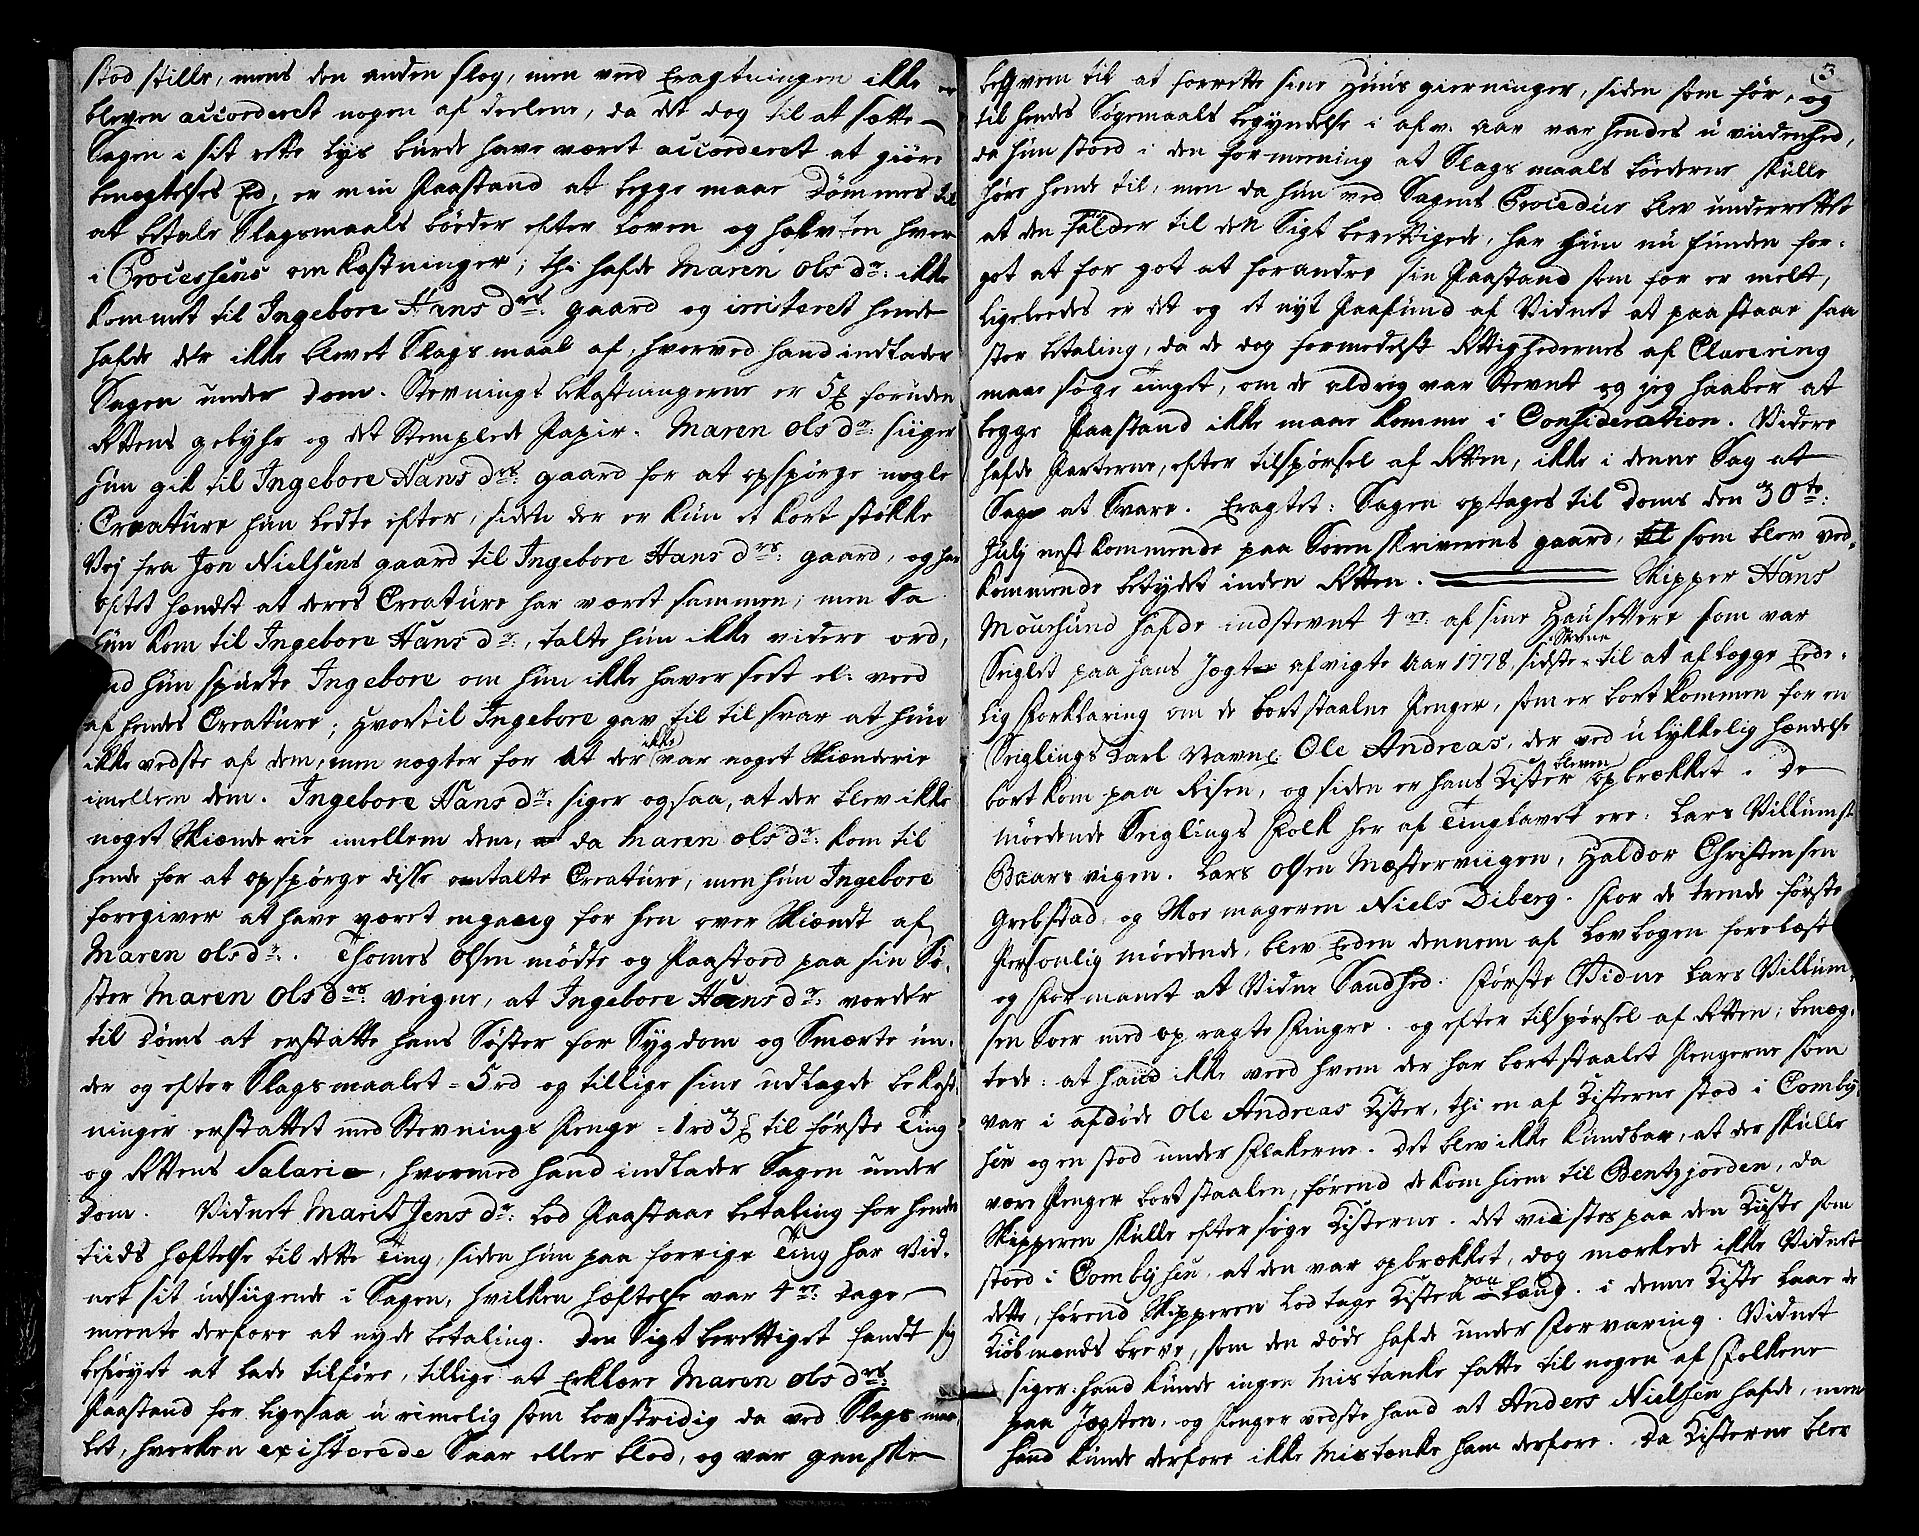 stod stille, mens den anden slog, men ved Eragtningen ikke er
bleven accorderet nogen af deelene, da det dog til at sætte
Sagen i sit rette lys burde have været accorderet at giøre
benegtelses Ed, er min Paastand at begge maae Dømmes til
at betale Slagsmaals bøder efter loven og halvten hver
i Processens omkostninger; thi hafde Maren Olsdr: ikke
kommet til Ingebore Hansdrs: gaard og irriteret hende
hafde der ikke blevet Slagsmaal af, hvorved hand indlader
Sagen under Dom. Stevnings bekostningerne er 5 foruden
Rettens gebyhr og det Stemplede Papir. Maren Olsdr: siiger
hun gik til Ingebore Hansdrs: gaard for at opspørge nogle
Creature hun ledte efter, siden der er kun et kort støkke
Vej fra Jon Nielsens gaard til Ingebore Hansdrs: gaard, og har
oftet hændt at deres Creature har været sammen; men da
hun kom til Ingebore Hansdr:, talte hun ikke videre ord,
end hun spurte Ingebore om hun ikke haver seet el: veed
af hendes Creature; hvortil Ingebore gav til til svar at hun
ikke vedste af dem, men negter for at der ikke var noget Skiænderie
imellem dem. Ingebore Hansdr: siger ogsaa, at der blev ikke
noget Skiænderie imellem dem, da Maren Olsdr: kom til
hende for at opspørge disse omtalte Creature, men hun Ingebore
foregiver at have været engang for hen over Skiændt af
Maren Olsdr:. Thomes Olsen mødte og Paastod paa sin Sø-
ster Maren Olsdrs veigne, at Ingebore Hansdr: vorder
til Døms at erstatte hans Søster for Sygdom og Smærte un-
der og efter Slagsmaalet = 5 rd og tillige sine udlagde bekost-
ninger erstattet med Stevnings Penge = 1 rd 3 til første Ting
og Rettens Salarie, hvormed hand indlader Sagen under
Dom. Vidnet Marit Jensdr: lod Paastaae betaling for hendes
tiids hæftelse til dette Ting, siden hun paa forrige Ting har Vid-
net sit udsiigende i Sagen, hvilken hæftelse var 4re: Dage
meente derfore at nyde betaling. Den Sigt berettiget fandt sig
beføyet at lade tilføre, tillige at Erklære Maren Olsdrs:
Paastand for ligesaa urimelig som lovstridig da ved Slagsmaa-
let, hverken existerede Saar eller blod, og var ganske
3
beqvem til at forrette sine Huus gierninger, siden som før, og
til hendes Søgemaals begyndelse i afv: Aar var hendes uviidenhed,
da hun stoed i den formeening at Slagsmaals bøderne skulle
høre hende til, men da hun ved Sagens Procedur blev underrettet
at den falder til den Sigt berettigede, har hun nu funden for-
got at for got at forandre sin Paastand som for er melt,
ligeleedes er det og et nyt Paafund af Vidnet at paastaae saa
stor betaling, da de dog formedelst Rettighedernes af Clarering
maae søge Tinget, om de aldrig var Stevnt og jeg haaber at
begge Paastand ikke maae komme i Consideration. Videre
hafde Parterne, efter tilspørsel af Retten, ikke i denne Sag at
Sag at Svare. Eragtet: Sagen optages til Doms den 30te:
Julj nestkommende paa Sorenskriverens gaard, som blev ved-
kommende betydet inden Retten. Skipper Hans
MourSund hafde indstevnt 4re af sine Hausettere som var
Seiglet paa hans Jægt afvigte Aar 1778, sidste Stevne til at aflegge Eede-
lig Forklaring om de bortstaalne Penger, som er bortkommen for en
Seiglings Karl Navnl: Ole Andreas, der ved ulykkelig hændelse
bortkom paa Reisen, og siden er hans Kister bleven opbrækket. De
møedende Seiglings Folk her af Tinglavet ere: Lars Villumsen
Baarsvigen. Lars Olsen Mæsterviigen, Haldor Christensen
Grebstad, og Skoemageren Niels Diberg. For de trende første
Personlig møedende, blev Eeden dennem af Lovbogen forelæst
og Formanet at Vidne Sandhed. Første Vidne Lars Villum-
sen Soer med opragte Fingre. og efter tilspørsel af Retten; benæg-
tede: at hand ikke veed hvem der har bortstaalet Pengerne som
var i afdøde Ole Andreas Kister, thi en af Kisterne stod i Comby-
sen og en stod under Flakerne. Det blev ikke kundbar, at der skulle
være Penger bortstaalen, førend de kom hiem til Bentzjorden, da
Skipperen skulle eftersøge Kisterne. Det viistes paa den Kiiste som
stoed i Combysen, at den var opbrækket, dog mærkede ikke Vidnet
dette, førend Skipperen lod tage Kisten paa Land. i denne Kiste laae de
Kiøbmænds breve, som den Døde hafde under Forvaring. Vidnet
siger: hand kunde ingen Mistanke fatte til nogen af Folkene
paa Jægten, og Penger vedste hand at Anders Nielsen hafde, men
hand kunde derfore ikke Mistænke ham derfore. Da Kisterne blev